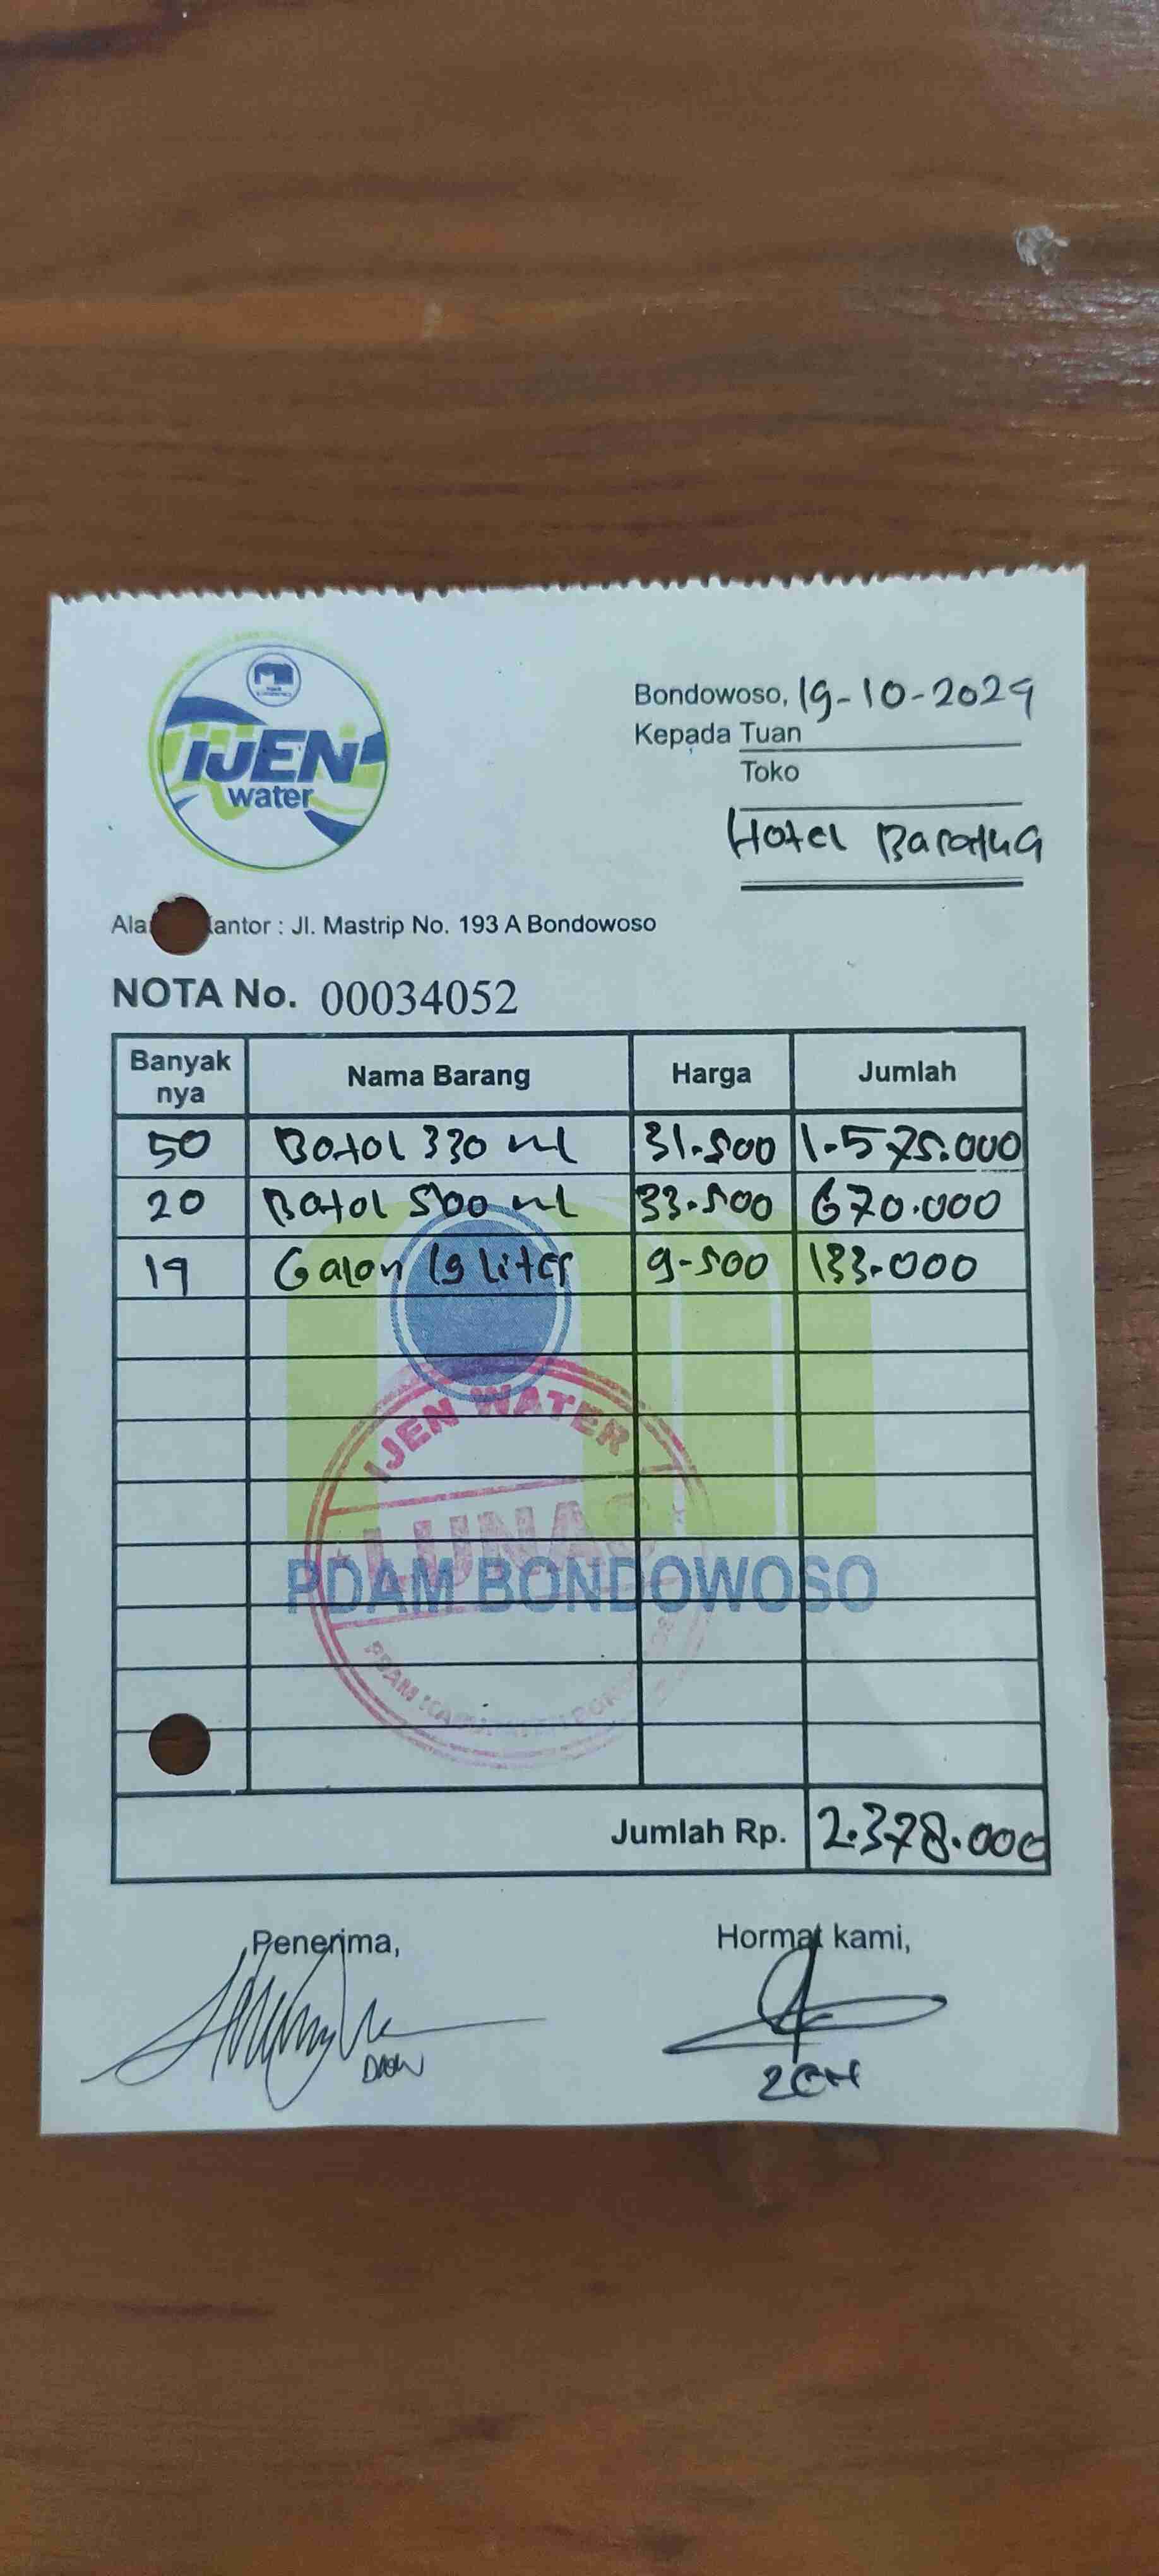 IJEN
water
Bondowoso, 19-10-2024
Kepada Tuan
Toko
Hotel Baratha
Kantor : Jl. Mastrip No. 193 A Bondowoso
NOTA No. 00034052
Banyak nya Nama Barang Harga Jumlah
50 Botol 330 ml 31.500 1.575.000
20 Botol 500 ml 33.500 670.000
14 Galon 19 liter 9.500 133.000
IJEN WATER
LUNAS
PDAM BONDOWOSO
Jumlah Rp. 2.378.000
Penerima, Hormat kami,